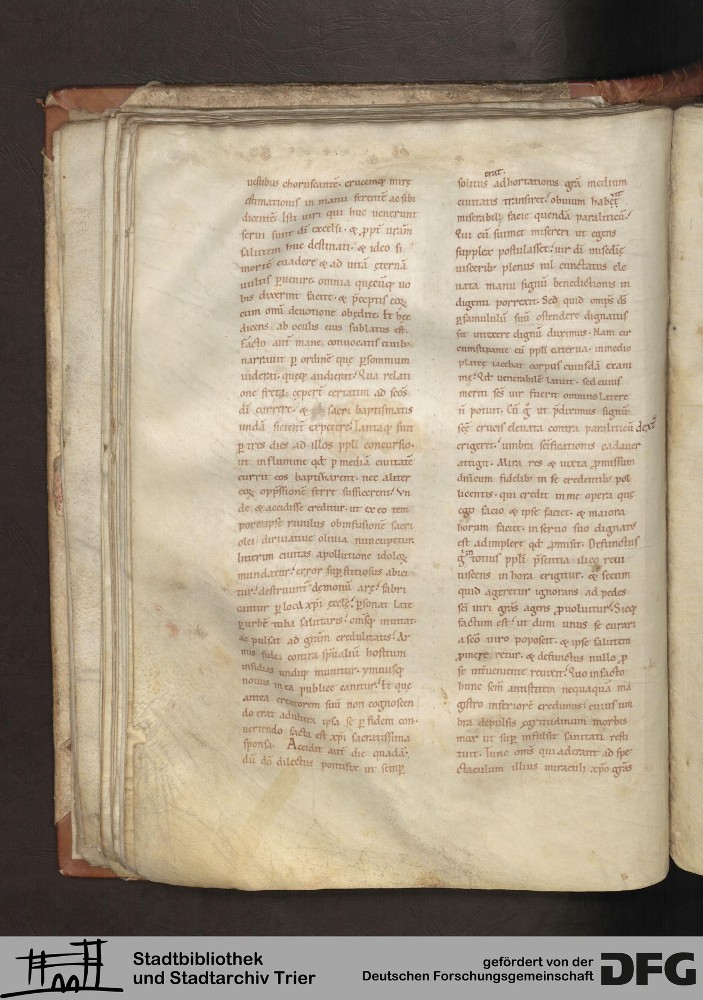 uestibus choruscante. crucemq; mirę
estimationis in manu ferente ac sibi
dicente. Isti uiri qui huc uenerunt
serui sunt di excelsi. & ppt uram
salutem huc destinati. & ideo si
morte euadere & ad uita eterna
uultis puenire. omnia quęcuq; uo
bis dixerint facite. & pceptis eoꝝ
cum omi deuotione obedite. Et hęc
dicens ab oculis eius sublatus est.
Facto aut mane conuocatis ciuib;
narrauit p ordine que p somnium
uiderat. quęq; audierat. Qua relati
one freti ceperunt certatim ad scos
di currere. & sacri baptismatis
unda sicient expetere. Tantaq; fuit
p tres dies ad illos ppli concursio.
ut in flumine qd p media ciuitate
currit eos baptizarent. nec aliter
eoꝝ oppssione ferre sufficerent. Vn
de & accidisse creditur. ut ex eo tem
pore ipse riuulus ob infusione sacri
olei diriuatiue oliuia nuncupetur.
Interim ciuitas a pollutione idoloꝝ
mundatur. error supstitiosus abici
tur. destruunt demonu arę. fabri
cantur p loca xpi eccłę. psonat late
p urbe tuba salutaris. omsq; inuitat
ac pulsat ad gram credulitatis. Ar
mis fidei contra spualiu hostium
insidias undiq; munitur. ymnusq;
nouus in ea publice canitur. Et que
antea creatorem suu non cognoscen
do erat adultera ipsa se p fidem con
uertendo facta est xpi sacratissima
sponsa. Accidit aut die quada.
du do dilectus pontifex ut semp
erat
solitus adhortationis gra medium
ciuitatis transiret. obuium haberet
miserabili facie quenda paraliticu.
Qui cu suimet misereri ut egens
supplex postulasset. uir di misedię
uisceribus plenus nil cunctatus ele
uata manu signu benedictionis in
digenti porrexit. Sed quid omps ds
p famulum suu ostendere dignatus
sit intexere dignu duximus. Nam cir
cumstipante eu ppli caterua. in medio
platee iacebat corpus cuiusda exani
me. Qd uenerabile latuit. sed cuius
meriti scs uir fuerit omnino latere
n potuit. Cu g ut pdiximus signu
sce crucis eleuata contra paraliticu dextra
erigeret. umbra scificationis cadauer
attigit. Mira res & iuxta pmissum
dnicum fidelib; in se credentib; pol
licentis. qui credit in me opera que
ego facio & ipse faciet. & maiora
horum faciet. in seruo suo dignatus
est adimplere qd pmisit. Defunctus
g in totius ppli psentia ilico reui
uiscens in hora erigitur. & secum
quid ageretur ignorans ad pedes
sci uiri gras agens puoluitur. Sicq;
factum est. ut dum unus se curari
a sco uiro poposcit. & ipse salutem
pmeretur. & defunctus nullo p
se interueniente reuixit. Quo in facto
hunc scm antistitem nequaqua ma
gistro inferiore credimus. cuius um
bra depulsis egritudinum morbis
mox ut sup infulsit sanitati resti
tuit. Tunc oms qui aderant ad spe
ctaculum illius miraculi xpo gras
Stadtbibliothek
und Stadtarchiv Trier
gefördert von der
Deutschen Forschungsgemeinschaft
DFG